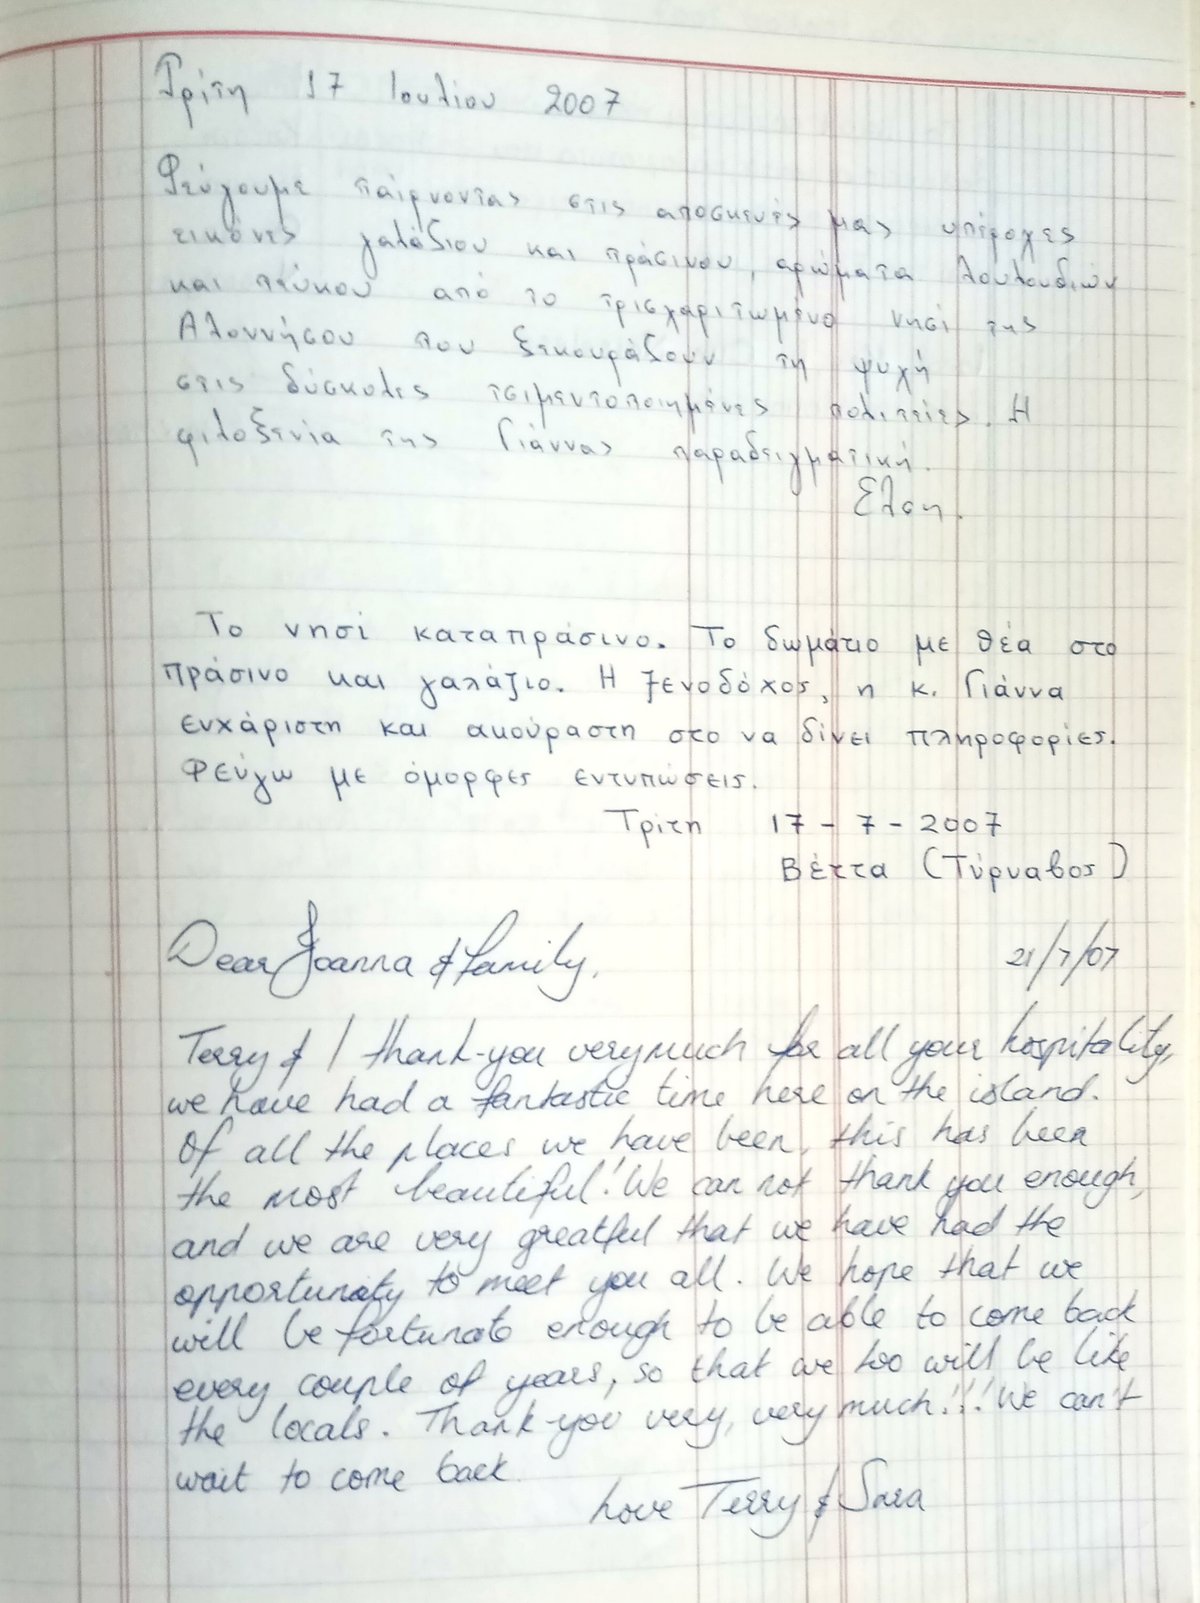 Τρίτη 17 Ιουλίου 2007
Φεύγουμε παίρνοντας στις αποσκευές μας υπέροχες
εικόνες γαλάζιου και πράσινου, αρώματα λουλουδιών
και πεύκου από το τρισχαριτωμένο νησί της
Αλοννήσου που ξεκουράζουν τη ψυχή
στις δύσκολες τσιμεντοποιημένες πολιτείες. Η
φιλοξενία της Γιάννας παραδειγματική.
Έλση.
Το νησί καταπράσινο. Το δωμάτιο με θέα στο
πράσινο και γαλάζιο. Η ξενοδόχος, η κ. Γιάννα
ευχάριστη και ακούραστη στο να δίνει πληροφορίες.
Φεύγω με όμορφες εντυπώσεις.
Τρίτη 17-7-2007
Βέττα (Τύρναβος)
Dear Joanna & family, 21/7/07
Terry & I thank-you very much for all your hospitality,
we have had a fantastic time here on the island.
Of all the places we have been, this has been
the most beautiful! We can not thank you enough,
and we are very greatful that we have had the
opportunity to meet you all. We hope that we
will be fortunate enough to be able to come back
every couple of years, so that we too will be like
the locals. Thank-you very, very much!!! We can't
wait to come back.
Love Terry & Sara